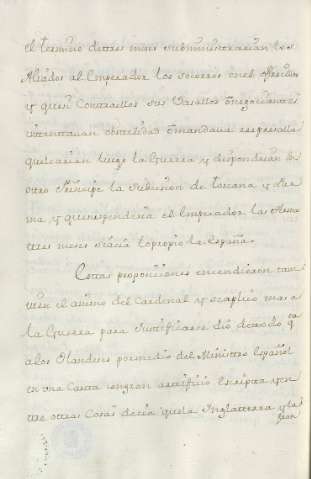 el termino de tres meses subministrarian los
Aliados al Emperador los socorros en el
y que si Contra ellos sus Vasallos
intentaran ostilidad
que harian luego la Guerra y dispondrian de
otro Principe la subcesion de toscana y Par
ma y que si espendiera el Emperador las Armas
tres meses aria lo propio la España.
Estas proposiciones encendieron tam
vien el animo del Cardenal y se aplicó mas a
la Guerra para Justificarse dió de todo qta
a los Olandeses por medio del Ministro Español
en una Carta con gran artificio Escripta y en
tre otras Cosas decia que la Inglaterra y la